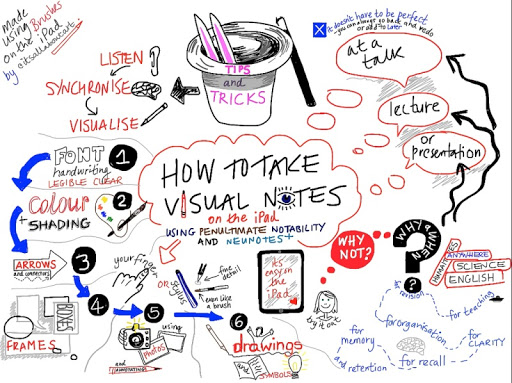 made
using Brushes
on the iPad
by @itsallaboutart
LISTEN
SYNCHRONISE
VISUALISE
TIPS
and
TRICKS
it doesn't have to be perfect
you can always go back and redo
or add to later
at a
talk
lecture
or
presentation
HOW TO TAKE
VISUAL NOTES
on the iPad
USING PENULTIMATE NOTABILITY
AND NEUNOTES+
1
FONT
handwriting
LEGIBLE CLEAR
2
Colour
+
SHADING
ARROWS
and connectors
3
4
5
6
BOXES
FRAMES
your finger
OR
Stylus
fine detail
even like a
brush
using
PHOTOS
and
ANNOTATIONS
drawings
and
SYMBOLS
it's
easy on
the
iPad
WHY
NOT?
WHY & WHEN
?
HUMANITIES
ANYWHERE
SCIENCE
ENGLISH
revision
for teaching
for organisation
for
memory
and retention
for recall
for
CLARITY